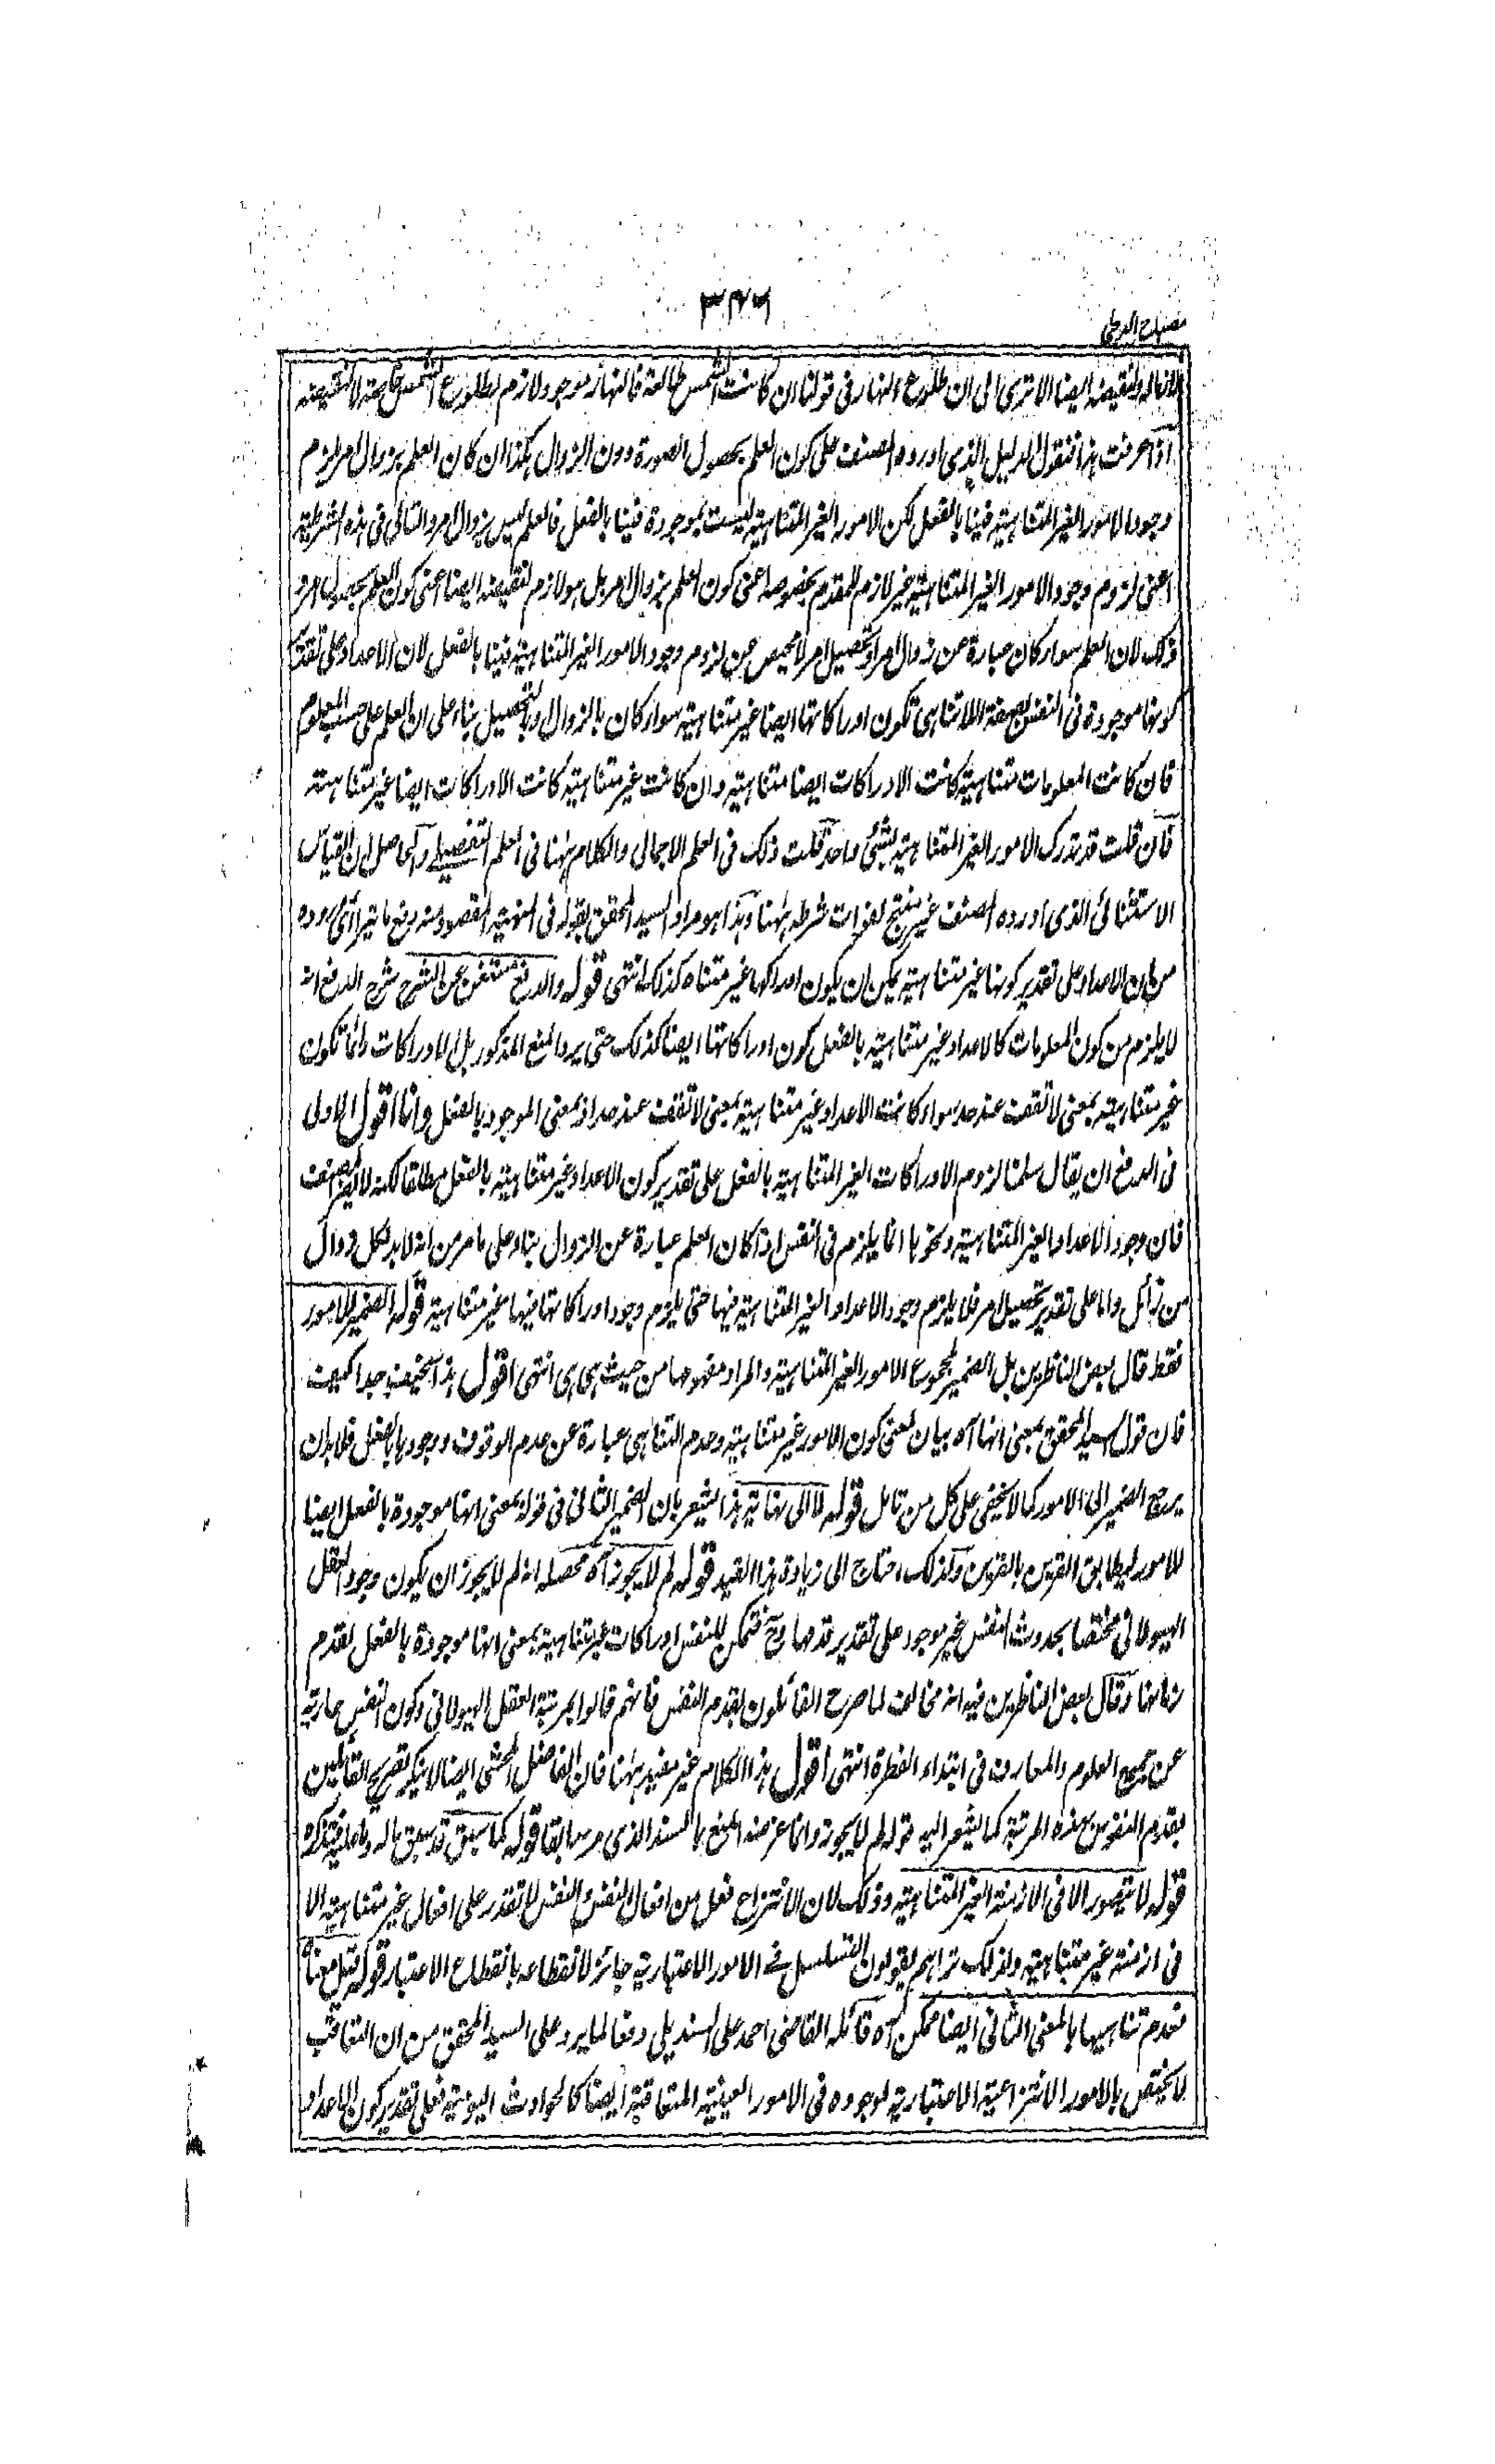 ٣٧٦
مصباح الدجى
لازما له ولنقيضه ايضا الا ترى الى ان طلوع النهار فى قولنا ان كانت الشمس طالعة فالنهار موجود لازم لطلوع الشمس خاصة لا لنقيضه
اذا عرفت هذا فنقول الدليل الذى اورده المصنف على كون العلم بحصول الصورة دون الزوال هكذا ان كان العلم بزوال امر لزم
وجود الامور الغير المتناهية فينا بالفعل لكن الامور الغير المتناهية ليست بموجودة فينا بالفعل فالعلم ليس بزوال امر والتالى فى هذه الشرطية
اعنى لزوم وجود الامور الغير المتناهية غير لازم للمقدم بخصوصه اعنى كون العلم بزوال امر بل هو لازم لنقيضه ايضا اعنى كون العلم بحصول امر و
ذلك لان العلم سواء كان عبارة عن زوال امر او تحصيل امر لا محيص عن لزوم وجود الامور الغير المتناهية فينا بالفعل لان الاعداد على تقدير
كونها موجودة فى النفس بصفة اللاتناهى تكون ادراكاتها ايضا غير متناهية سواء كان بالزوال او بالتحصيل بناء على ان العلم على حسب المعلوم
فان كانت المعلومات متناهية كانت الادراكات ايضا متناهية وان كانت غير متناهية كانت الادراكات ايضا غير متناهية
فان قلت قد تدرك الامور الغير المتناهية بشئ واحد قلت ذلك فى العلم الاجمالى والكلام ههنا فى العلم التفصيلے والحاصل ان القياس
الاستثنائى الذى اورده المصنف غير منتج لفوات شرطه ههنا وهذا هو مراد السيد المحقق بقوله فى المنهية المقصود منه دفع ما يتراآى وروده
من ان الاعداد على تقدير كونها غير متناهية يمكن ان يكون ادراكها غير متناه كذلك انتهى قوله والدفع مستغن عن الشرح شرح الدفع انه
لا يلزم من كون المعلومات كالاعداد غير متناهية بالفعل كون ادراكاتها ايضا كذلك حتى يرد المنع المذكور بل الادراكات دائما تكون
غير متناهية بمعنى لا تقف عند حد سواء كانت الاعداد غير متناهية بمعنى لا تقف عند حد او بمعنى الموجود بالفعل وانا اقول الاولى
فى الدفع ان يقال سلمنا لزوم الادراكات الغير المتناهية بالفعل على تقدير كون الاعداد غير متناهية بالفعل مطلقا لكنه لا يضر المصنف
فان وجود الاعداد الغير المتناهية ونحوها انما يلزم فى النفس اذا كان العلم عبارة عن الزوال بناء على ما مر من انه لا بد لكل زوال
من زائل واما على تقدير تحصيل امر فلا يلزم وجود الاعداد الغير المتناهية فيها حتى يلزم وجود ادراكاتها فيها غير متناهية قوله الضمير للامور
فقط قال بعض الناظرين بل الضمير لمجموع الامور الغير المتناهية والمراد مفهومها من حيث هى هى انتهى اقول هذا سخيف جدا كيف
فان قول السيد المحقق بمعنى انها اه بيان لمعنى كون الامور غير متناهية وعدم التناهى عبارة عن عدم الوقوف ووجودها بالفعل فلا بد ان
يرجع الضمير الى الامور كما لا يخفى على كل من تامل قوله لا الى نهاية هذا يشعر بان الضمير الثانى فى قوله بمعنى انها موجودة بالفعل ايضا
للامور ليطابق القرين بالقرين ولذلك احتاج الى زيادة هذا القيد قوله لم لا يجوز اه محصله انه لم لا يجوز ان يكون وجود العقل
الهيولانى مختصا بحدوث النفس غير موجود على تقدير قدمها وح فتمكن للنفس ادراكات غير متناهية بمعنى انها موجودة بالفعل لقدم
زمانها وقال بعض الناظرين فيه انه مخالف لما صرح القائلون بقدم النفس فانهم قالوا بمرتبة العقل الهيولانى وكون النفس عارية
عن جميع العلوم والمعارف فى ابتداء الفطرة انتهى اقول هذا الكلام غير مفيد ههنا فان الفاضل المحشى ايضا لا ينكر تصريح القائلين
بقدم النفوس بهذه المرتبة كما يشعر اليه قوله لم لا يجوز وانما غرضه المنع بالسند الذى مر سابقا قوله كما سبق قد سبق ماله وما عليه فتذكره
قوله لا يتصور الا فى الازمنة الغير المتناهية وذلك لان الانتزاع فعل من افعال النفس والنفس لا تقدر على افعال غير متناهية الا
فى ازمنة غير متناهية ولذلك تراهم يقولون التسلسل فے الامور الاعتبارية جائز لانقطاعه بانقطاع الاعتبار قوله قيل معناه
فعدم تناهيها بالمعنى الثانى ايضا ممكن اه قائله القاضى احمد على السنديلى دفعا لما يرد على السيد المحقق من ان التعاقب
لا يختص بالامور الانتزاعية الاعتبارية لوجوده فى الامور العينية المتعاقبة ايضا كالحوادث اليومية فعلى تقدير كون الاعداد